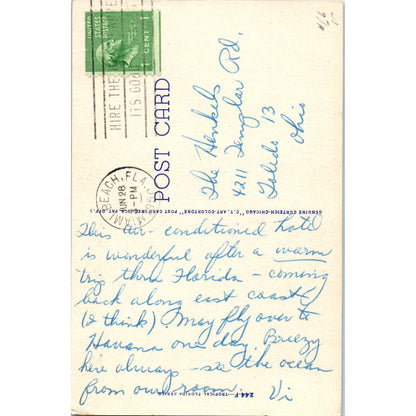 #66
1-
UNITED STATES POSTAGE
1 CENT 1
HIRE THE
ITS GOO
MIAMI BEACH, FLA.
JUN 28
-PM
1950
POST CARD
The Henkels
4211 Tinglar Rd.
Toledo 13
Ohio
GENUINE CURTEICH-CHICAGO "C.T. ART-COLORTONE" POST CARD (REG. U.S. PAT. OFF.)
This air-conditioned hotel
is wonderful after a warm
trip thru Florida - coming
back along east coast
(I think). May fly over to
Havana one day. Breezy
here always - see the ocean
from our room. Vi
244-F TROPICAL FLORIDA SERIES